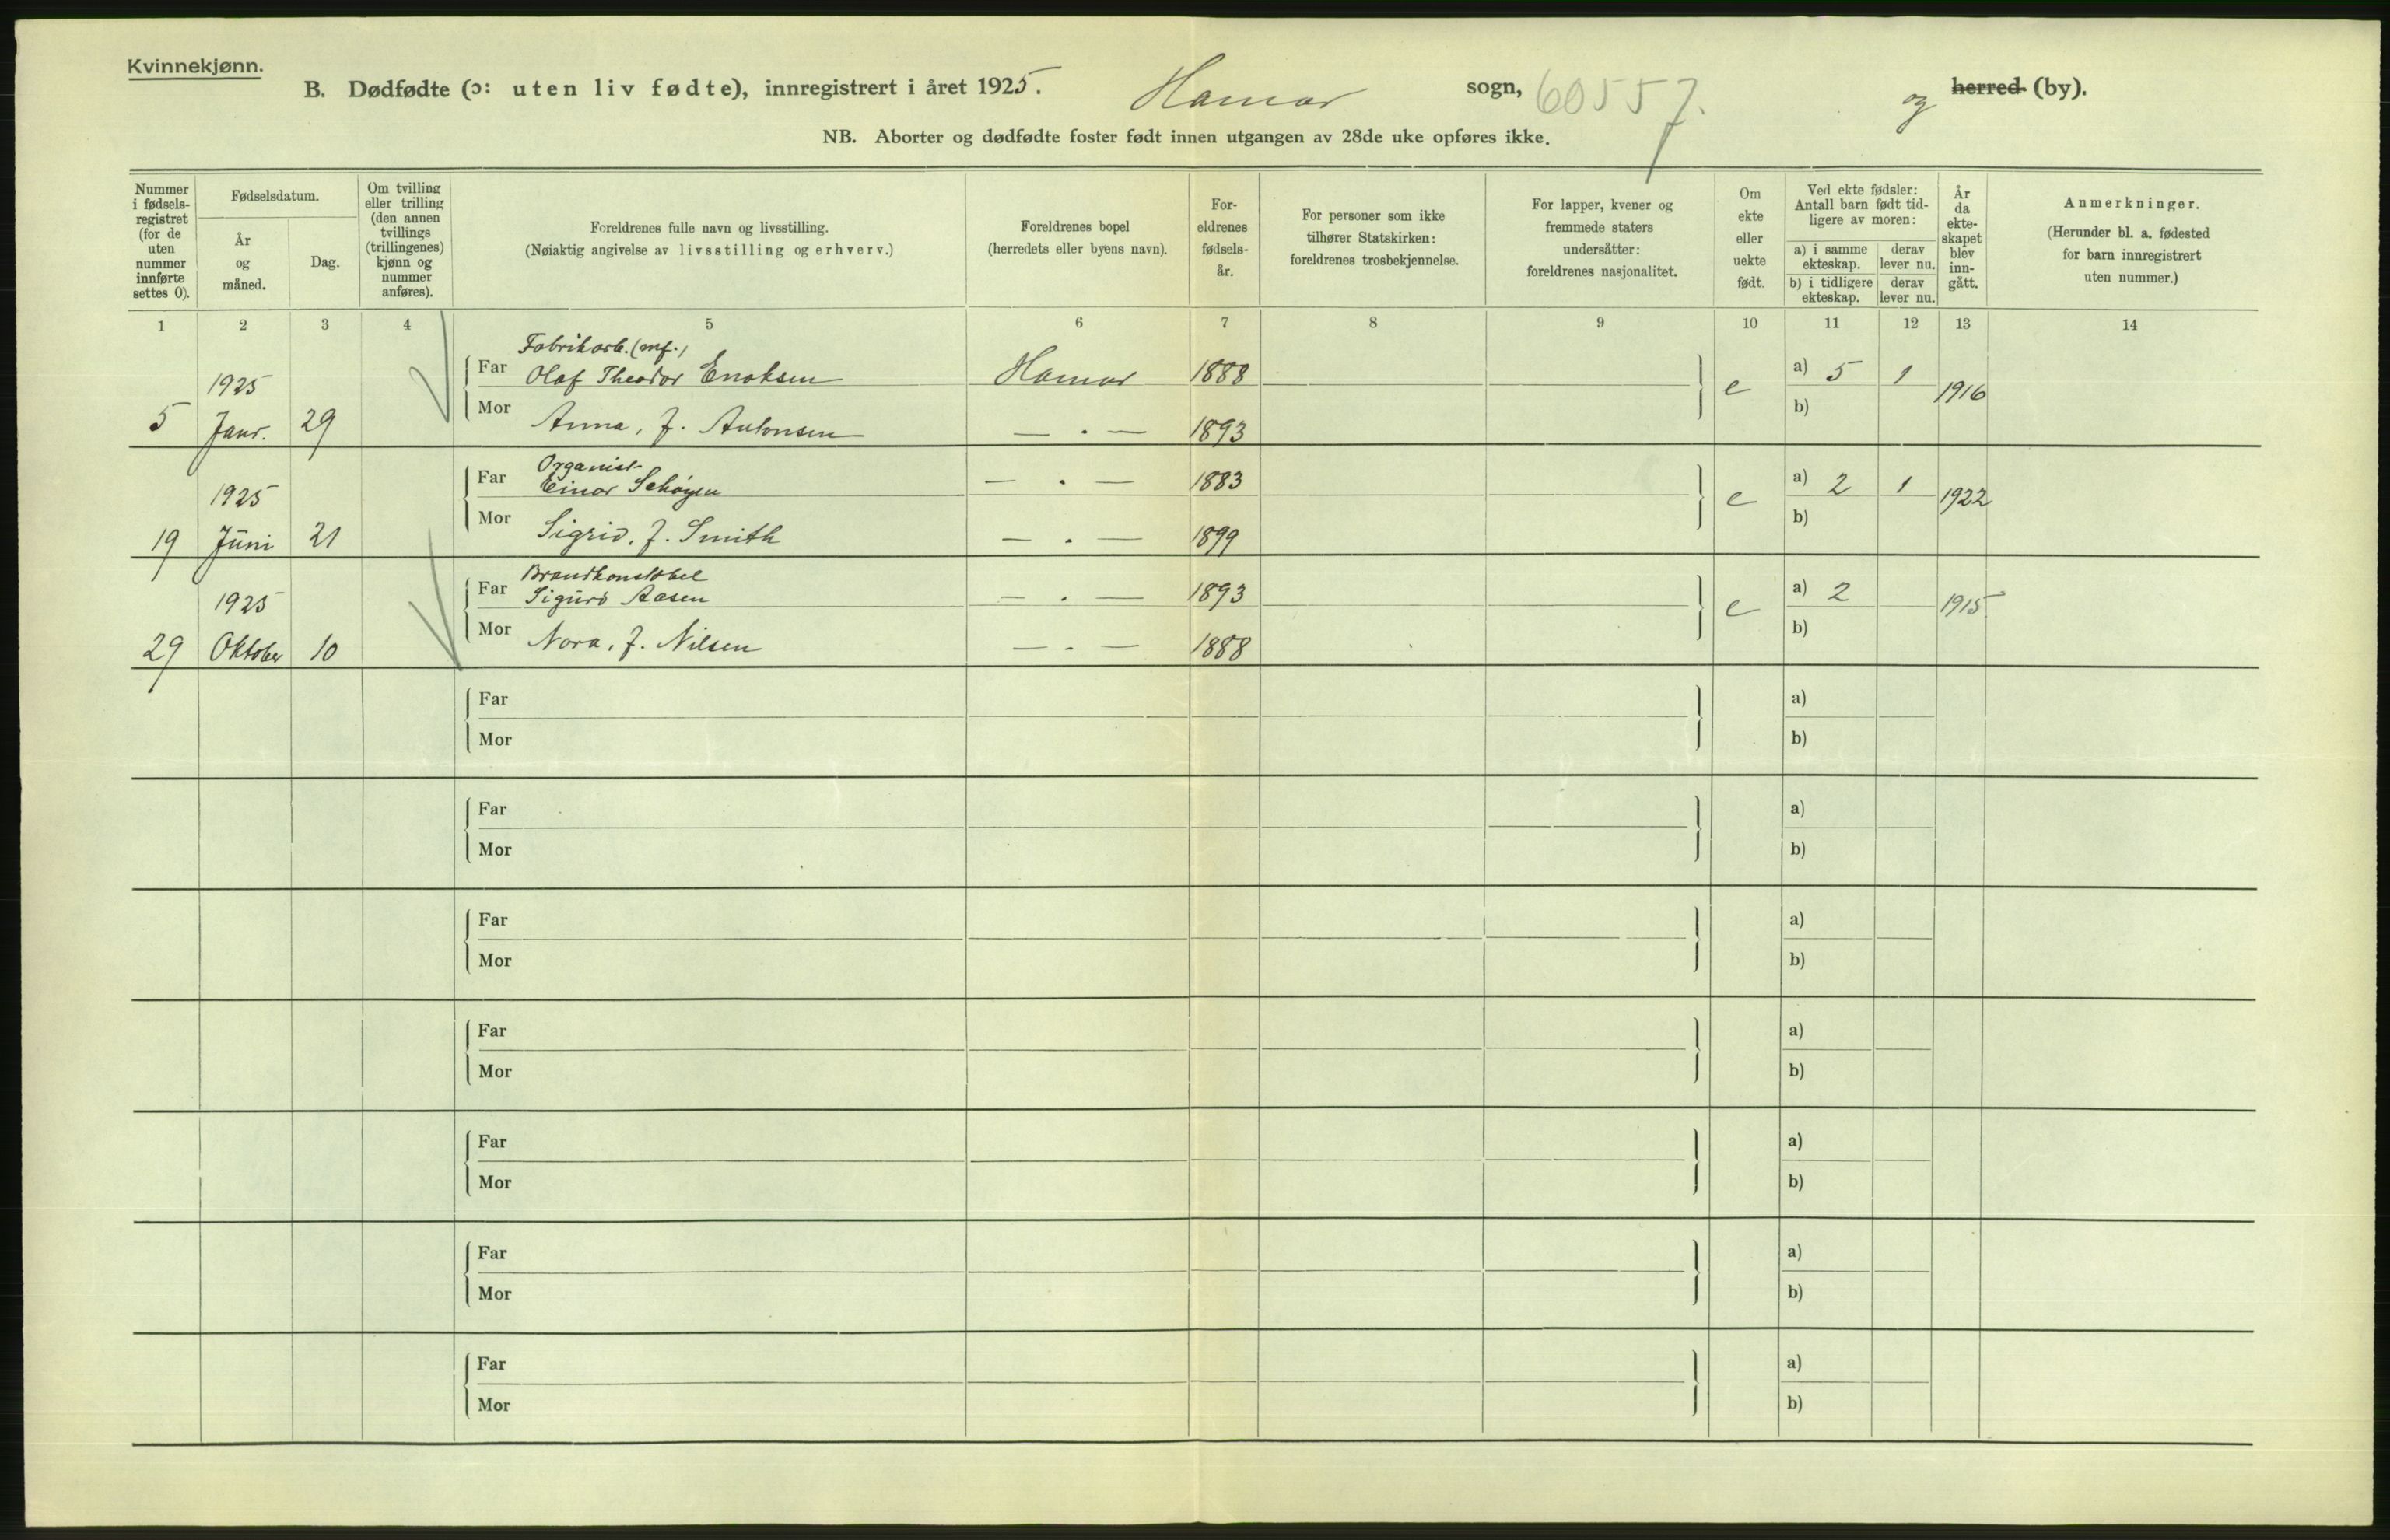 Kvinnekjønn.
B. Dødfødte (ɔ: uten liv fødte), innregistrert i året 1925. Hamar sogn, 60557. og herred (by).
NB. Aborter og dødfødte foster født innen utgangen av 28de uke opføres ikke.
Nummer i fødsels- registret (for de uten nummer innførte settes 0).
Fødselsdatum.
År og måned.
Dag.
Om tvilling eller trilling (den annen tvillings (trillingenes) kjønn og nummer anføres).
Foreldrenes fulle navn og livsstilling.
(Nøiaktig angivelse av livsstilling og erhverv.)
Foreldrenes bopel
(herredets eller byens navn).
For- eldrenes fødsels- år.
For personer som ikke tilhører Statskirken: foreldrenes trosbekjennelse.
For lapper, kvener og fremmede staters undersåtter: foreldrenes nasjonalitet.
Om ekte eller uekte født.
Ved ekte fødsler: Antall barn født tid- ligere av moren:
a) i samme ekteskap.
derav lever nu.
b) i tidligere ekteskap.
derav lever nu.
År da ekte- skapet blev inn- gått.
Anmerkninger.
(Herunder bl. a. fødested for barn innregistrert uten nummer.)
1 2 3 4 5 6 7 8 9 10 11 12 13 14
Fabrikarb. (mf.)
1925 Far Olaf Theodor Enoksen Hamar 1888 e a) 5 1 1916
5 Janr. 29 Mor Anna, f. Antonsen — . — 1893 b)
Organist
1925 Far Einar Schøyen — . — 1883 e a) 2 1 1922
19 Juni 21 Mor Sigrid, f. Smith — . — 1899 b)
Brandkonstabel
1925 Far Sigurd Aasen — . — 1893 e a) 2 1915
29 Oktober 10 Mor Nora, f. Nilsen — . — 1888 b)
Far a)
Mor b)
Far a)
Mor b)
Far a)
Mor b)
Far a)
Mor b)
Far a)
Mor b)
Far a)
Mor b)
Far a)
Mor b)